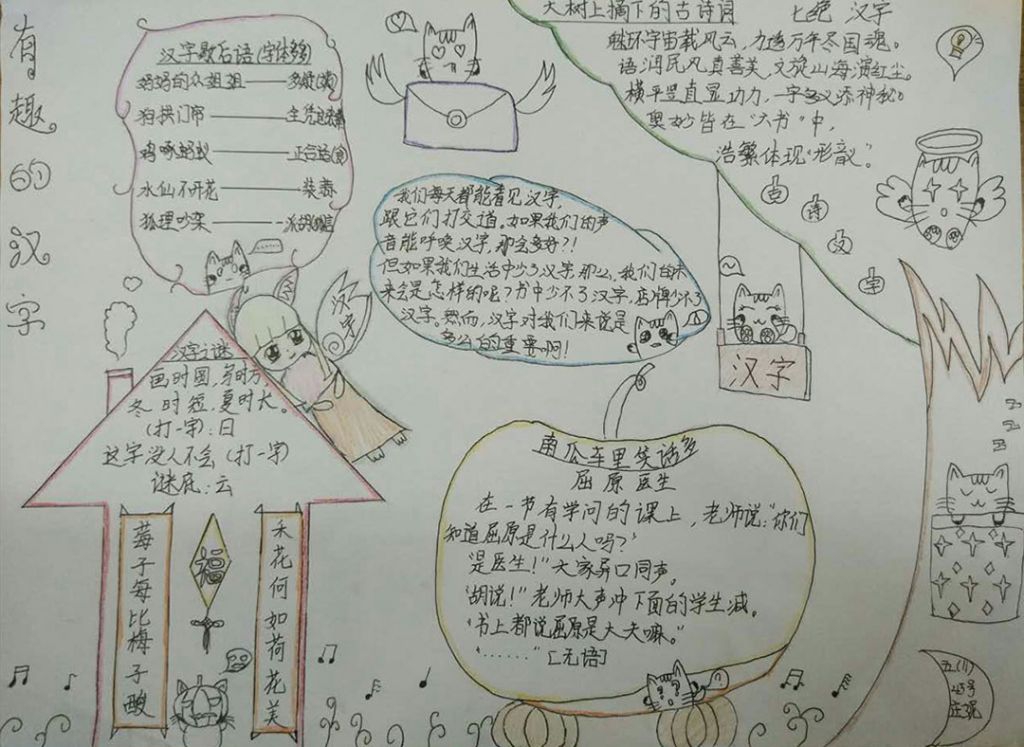 有趣的汉字
汉字歇后语(字体多)
妈妈的众姐姐——多姨(疑)
狗拱门帘——全凭
鸡啄蚂蚁——正合适(食)
水仙不开花——装蒜
狐狸吵架——一派胡(狐)言
大树上摘下的古诗词
七绝 汉字
胸怀宇宙载风云,力透万年尽国魂。
语润民风真善美,文旋山海演红尘。
横平竖直显功力,一字多义添神秘。
奥妙皆在“六书”中,
浩繁体现“形音”。
古
诗
汉字
我们每天都能看见汉字,
跟它们打交道。如果我们的声
音能呼唤汉字,那么多好?!
但如果我们生活中少了汉字,那么,我们的未
来会是怎样的呢?书中少不了汉字,店牌少不了
汉字。然而,汉字对我们来说是
多么的重要啊!
汉字
汉字之谜
画时圆,写时方,
冬时短,夏时长。
(打一字):日
这字没人不会(打一字)
谜底:云
莓子每比梅子酸
福
禾花何如荷花美
南瓜车里笑话多
屈原医生
在一节有学问的课上,老师说:“你们
知道屈原是什么人吗?”
“是医生!”大家异口同声。
“胡说!”老师大声冲下面的学生喊。
“书上都说屈原是大夫嘛。”
“......”[无语]
五(11)